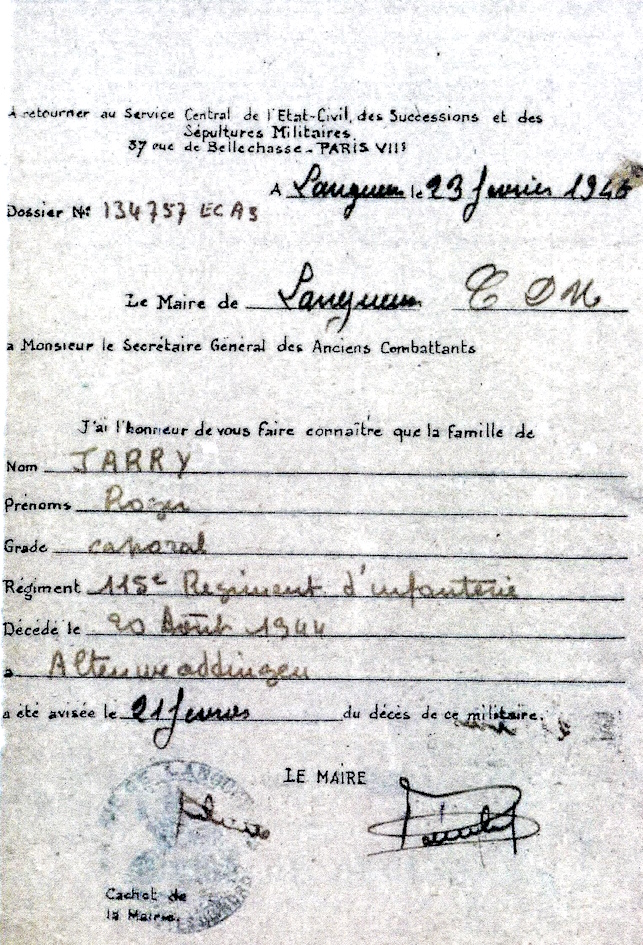 A retourner au Service Central de l'Etat-Civil, des Successions et des
Sépultures Militaires
37 rue de Bellechasse - PARIS VII
A Langueux le 23 fevrier 1946
Dossier N° 134757 ECA3
Le Maire de Langueux C D N
a Monsieur le Secrétaire Général des Anciens Combattants
J'ai l'honneur de vous faire connaître que la famille de
Nom JARRY
Prénoms Roger
Grade caporal
Régiment 115e Regiment d'infanterie
Décédé le 20 Août 1944
a Altenweddingen
a été avisée le 21 fevrier du décès de ce militaire.
LE MAIRE
Cachet de
la Mairie.